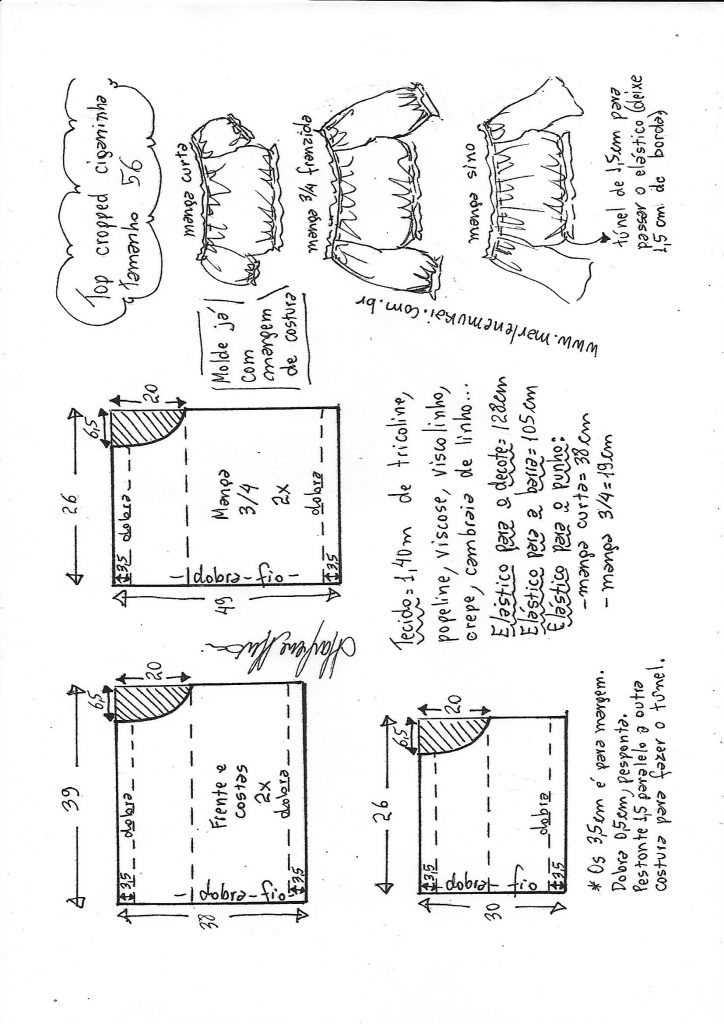 Top cropped ciganinha
Tamanho 56
manga curta
manga 3/4 franzida
manga sino
túnel de 1,5cm para
passar o elástico (deixe
1,5 cm de borda)
www.marlenemukai.com.br
Molde já
com
margem
de costura
26
20
6,5
3,5
dobra
Manga
3/4
2x
dobra
fio - dobra
3,5
49
39
20
6,5
3,5
dobra
Frente e
costas
2x
dobra
fio - dobra
3,5
38
Tecido = 1,40m de tricoline,
popeline, viscose, viscolinho,
crepe, cambraia de linho...
Elástico para o decote = 128cm
Elástico para a barra = 105cm
Elástico para o punho:
- manga curta = 38cm
- manga 3/4 = 19cm
26
20
6,5
3,5
dobra
fio - dobra
3,5
30
* Os 3,5cm é para margem.
Dobra 0,5cm, pesponta.
Pestonte 1,5 paralelo a outra
costura para fazer o túnel.